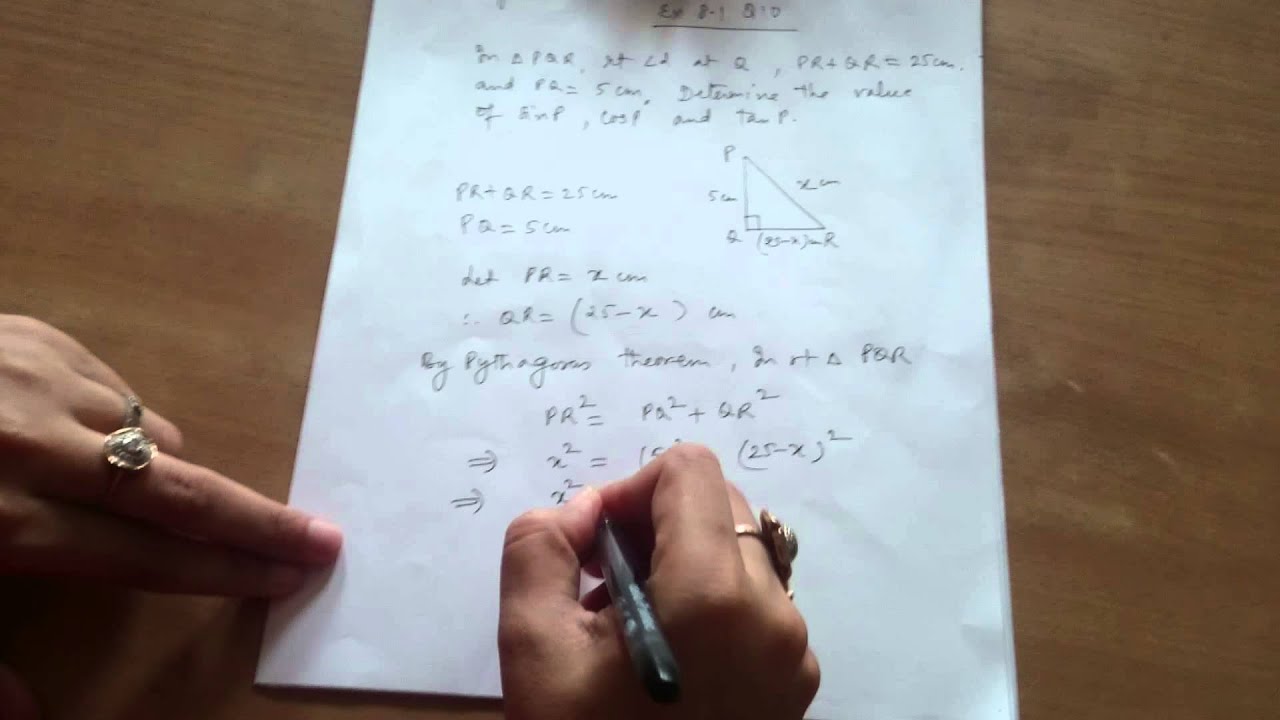 Ex 8.1 Q10
In △ PQR, rt ∠d at Q, PR+QR = 25cm.
and PQ = 5 cm. Determine the value
of sinP, cosP and tanP.
P
5cm
x cm
Q (25-x)cm R
PR+QR = 25cm
PQ = 5cm
Let PR = x cm
∴ QR = (25-x) cm
By Pythagoras theorem, In rt △ PQR
PR² = PQ² + QR²
⇒ x² = (5 (25-x)²
⇒ x²